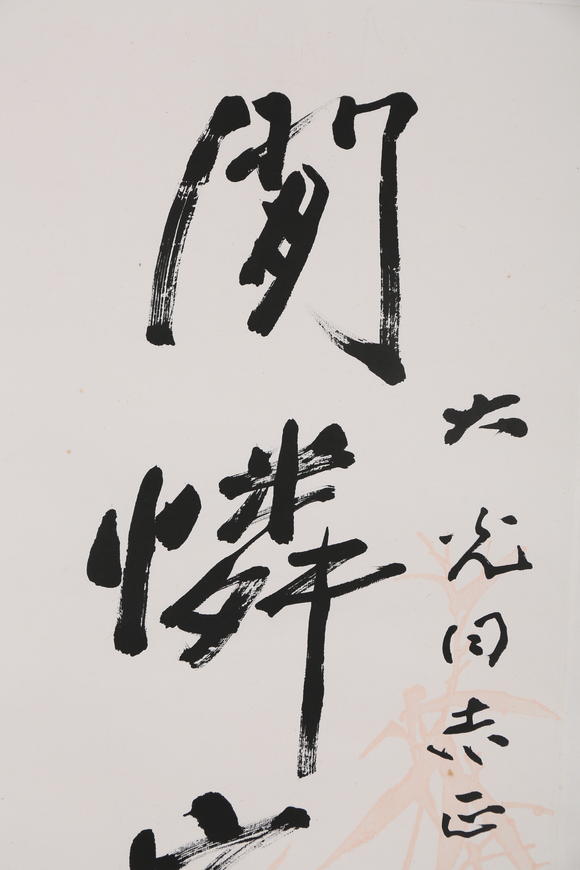 大光同志正
閒憐